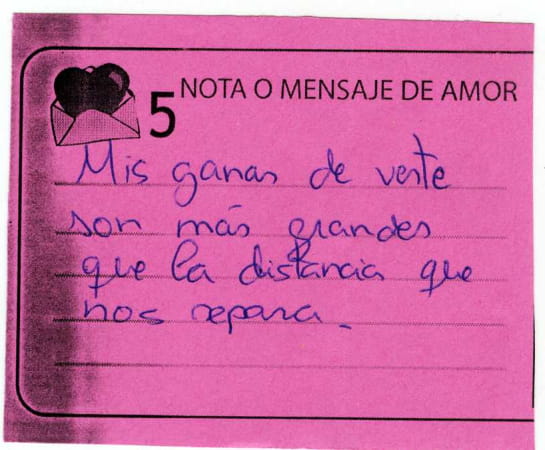 5 NOTA O MENSAJE DE AMOR
Mis ganas de verte
son más grandes
que la distancia que
nos separa.